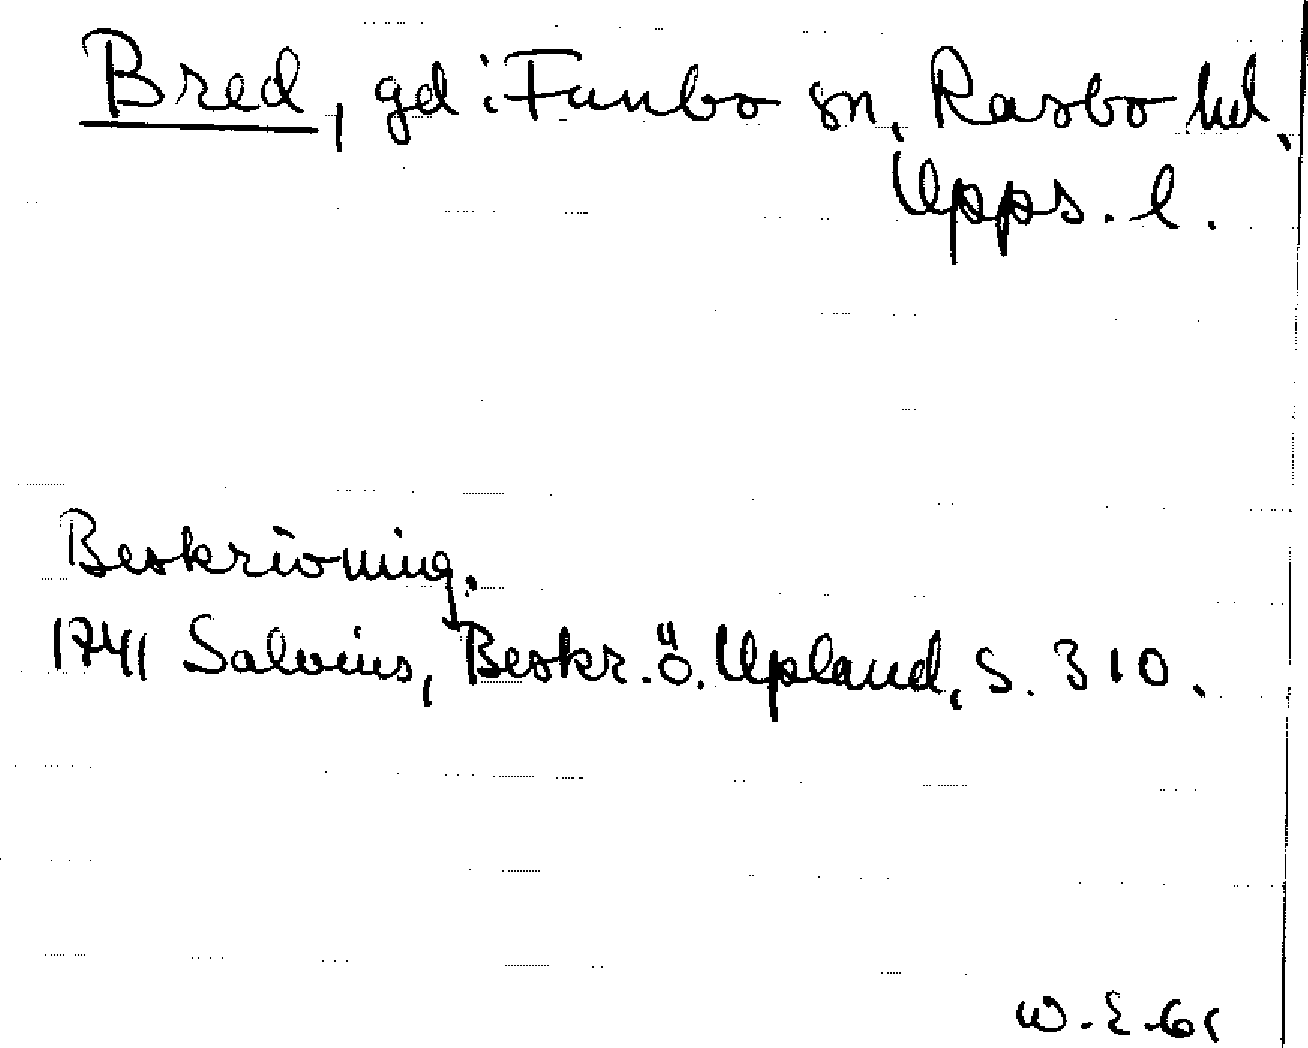 Bred, gd i Funbo sn, Rasbo hd.
Upps. l.
Beskrivning.
1741 Salvius, Beskr. ö. Upland, S. 310.
W. E. 61